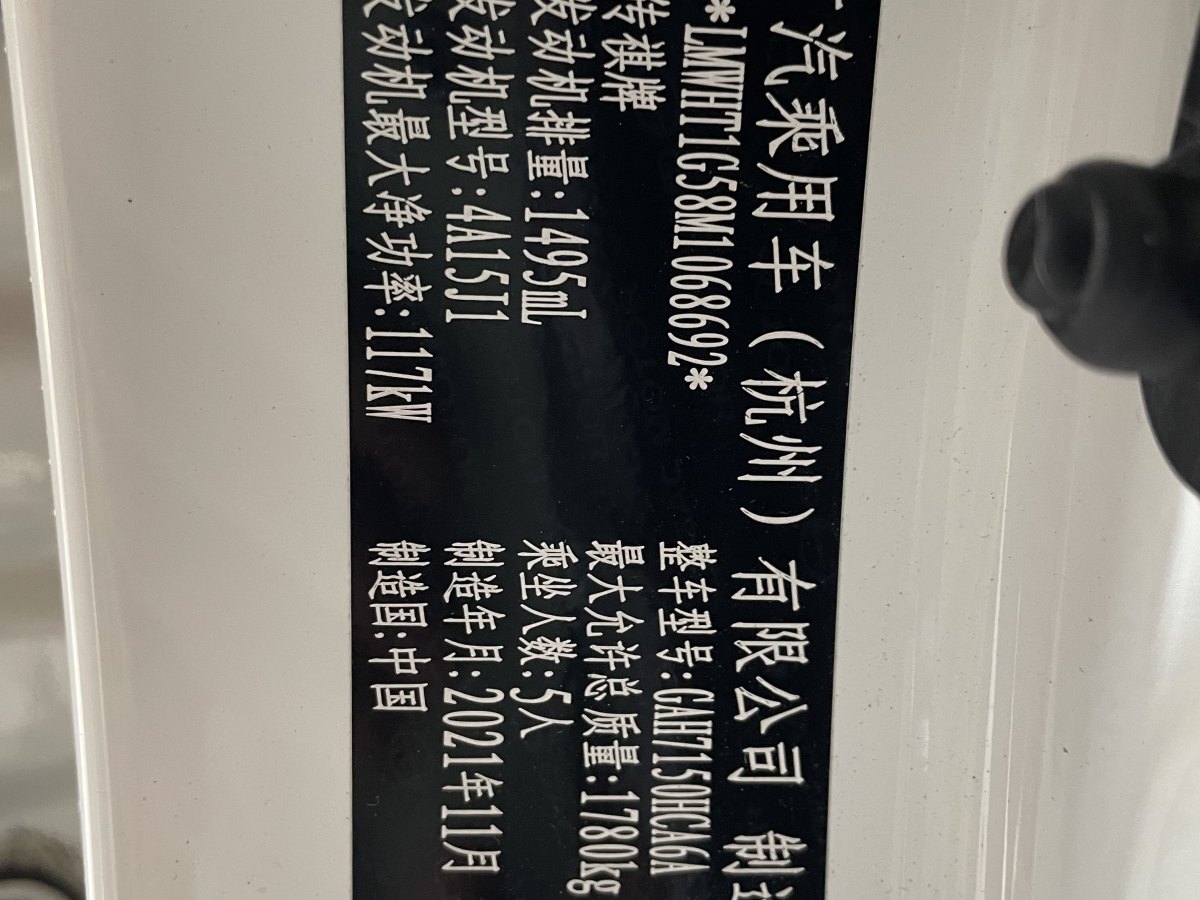 汽乘用车（杭州）有限公司 制造
*LMWHT1G58M1068692*
整车型号:GAH7150HCA6A
传祺牌
最大允许总质量:1780kg
发动机排量:1495mL
乘坐人数:5人
发动机型号:4A15J1
制造年月:2021年11月
发动机最大净功率:117kW
制造国:中国